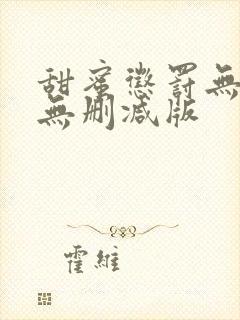 甜蜜懲罰無
無刪減版
霍維